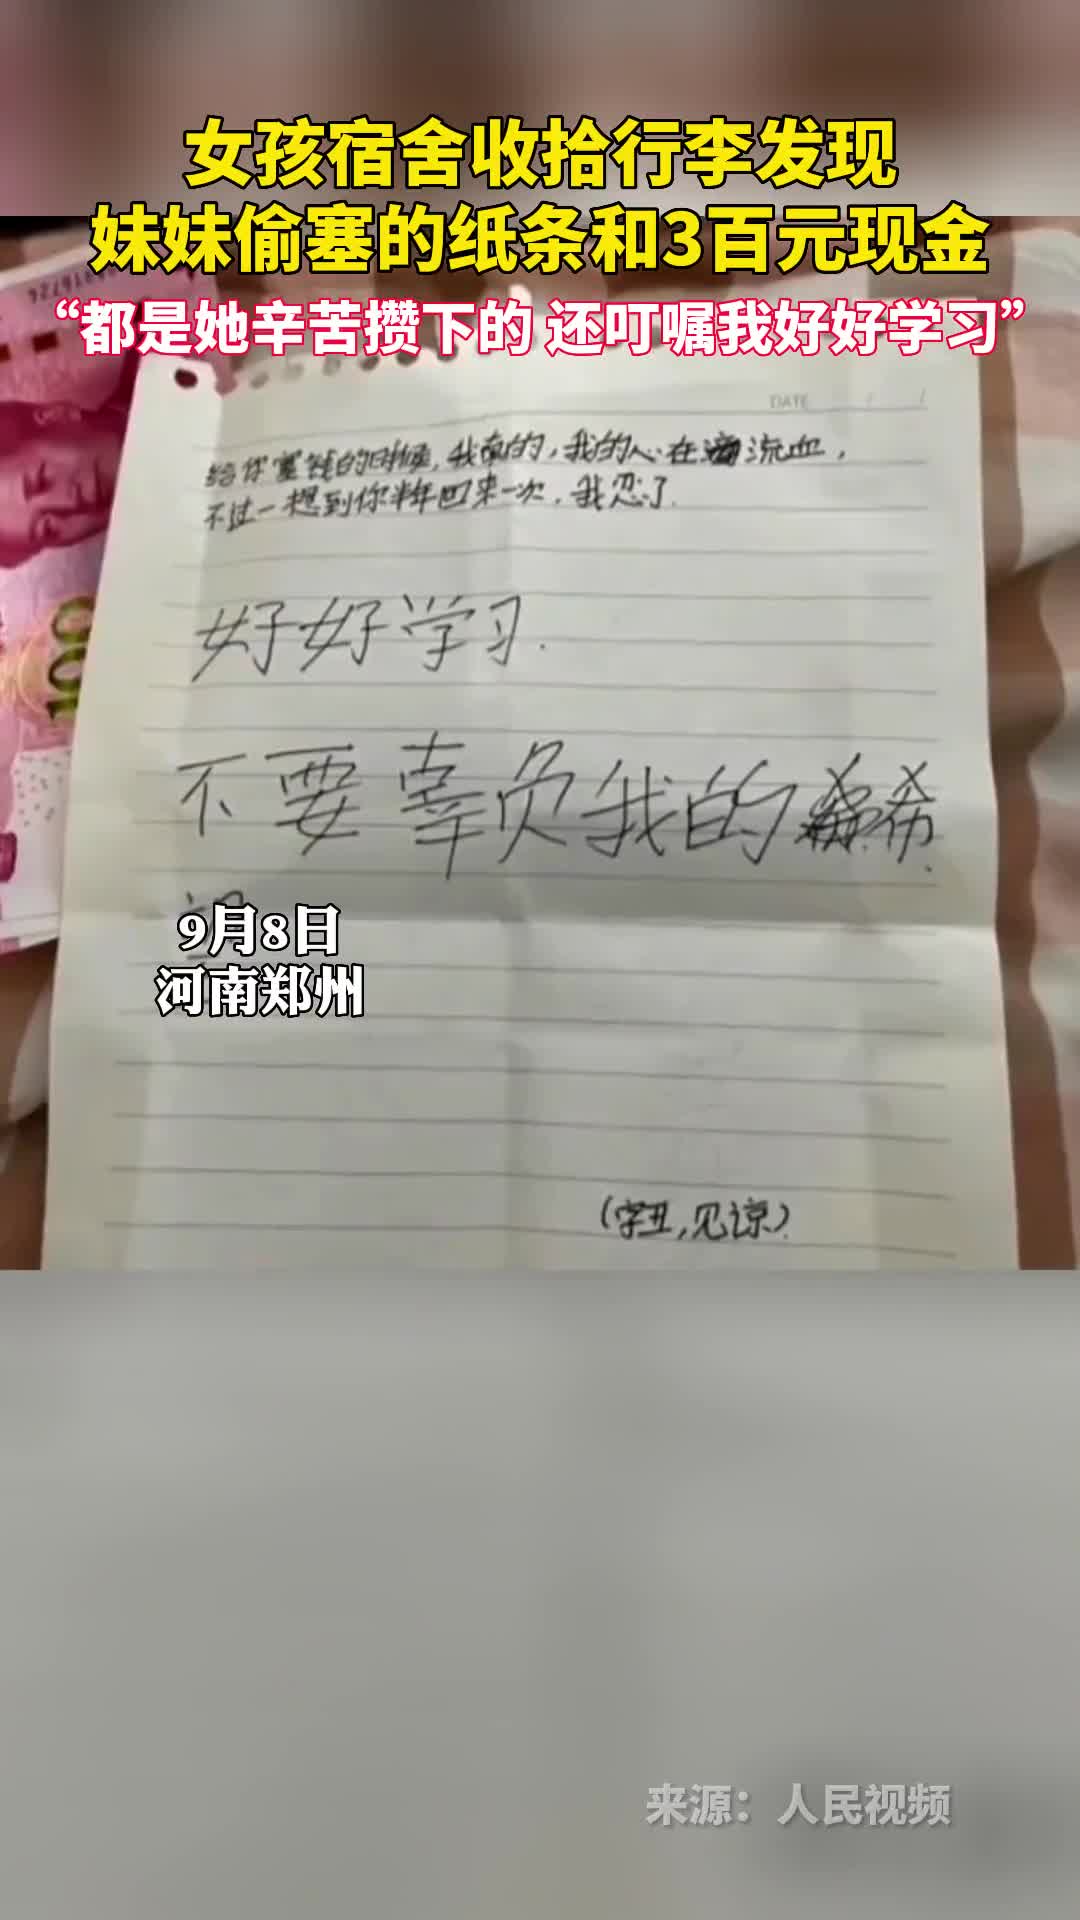 女孩宿舍收拾行李发现
妹妹偷塞的纸条和3百元现金
“都是她辛苦攒下的 还叮嘱我好好学习”
DATE / /
给你塞钱的时候,我真的,我的心在流血,
不过一想到你半年回来一次,我忍了.
好好学习.
不要辜负我的希
9月8日
河南郑州
(字丑,见谅)
来源：人民视频
100